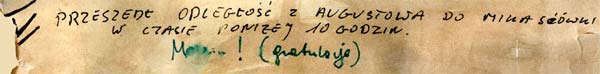 PRZESZEDŁ ODLEGŁOŚĆ Z AUGUSTOWA DO MIKASZÓWKI
W CZASIE PONIŻEJ 10 GODZIN.
! (gratulacje)